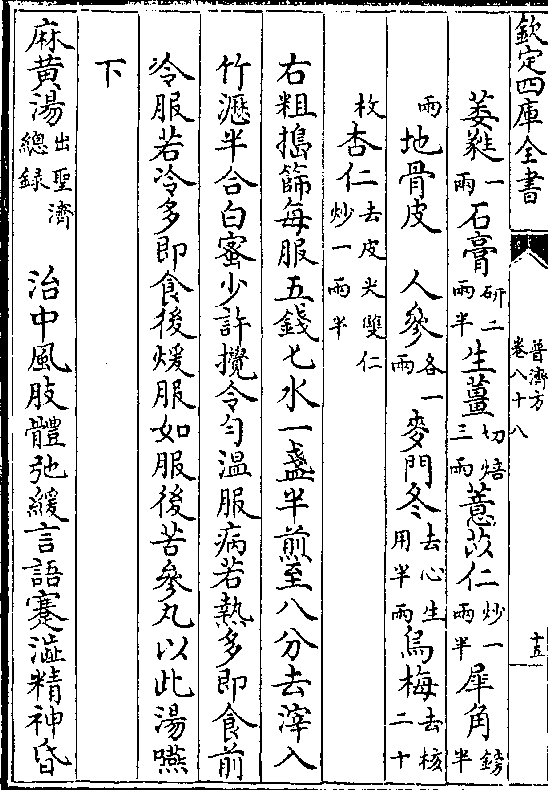 欽定四庫全書
普濟方
卷八十八
十五
萎蕤一兩石膏研二兩半生薑切焙三兩薏苡仁炒一兩半犀角鎊半
兩地骨皮 人參各一兩麥門冬去心生用半兩烏梅去核二十
枚杏仁去皮尖雙仁炒一兩半
右粗搗篩每服五錢匕水一盞半煎至八分去滓入
竹瀝半合白蜜少許攪令勻溫服病若熱多即食前
冷服若冷多即食後煖服如服後苦參丸以此湯嚥
下
麻黃湯出聖濟總録 治中風肢體弛緩言語蹇澁精神昏